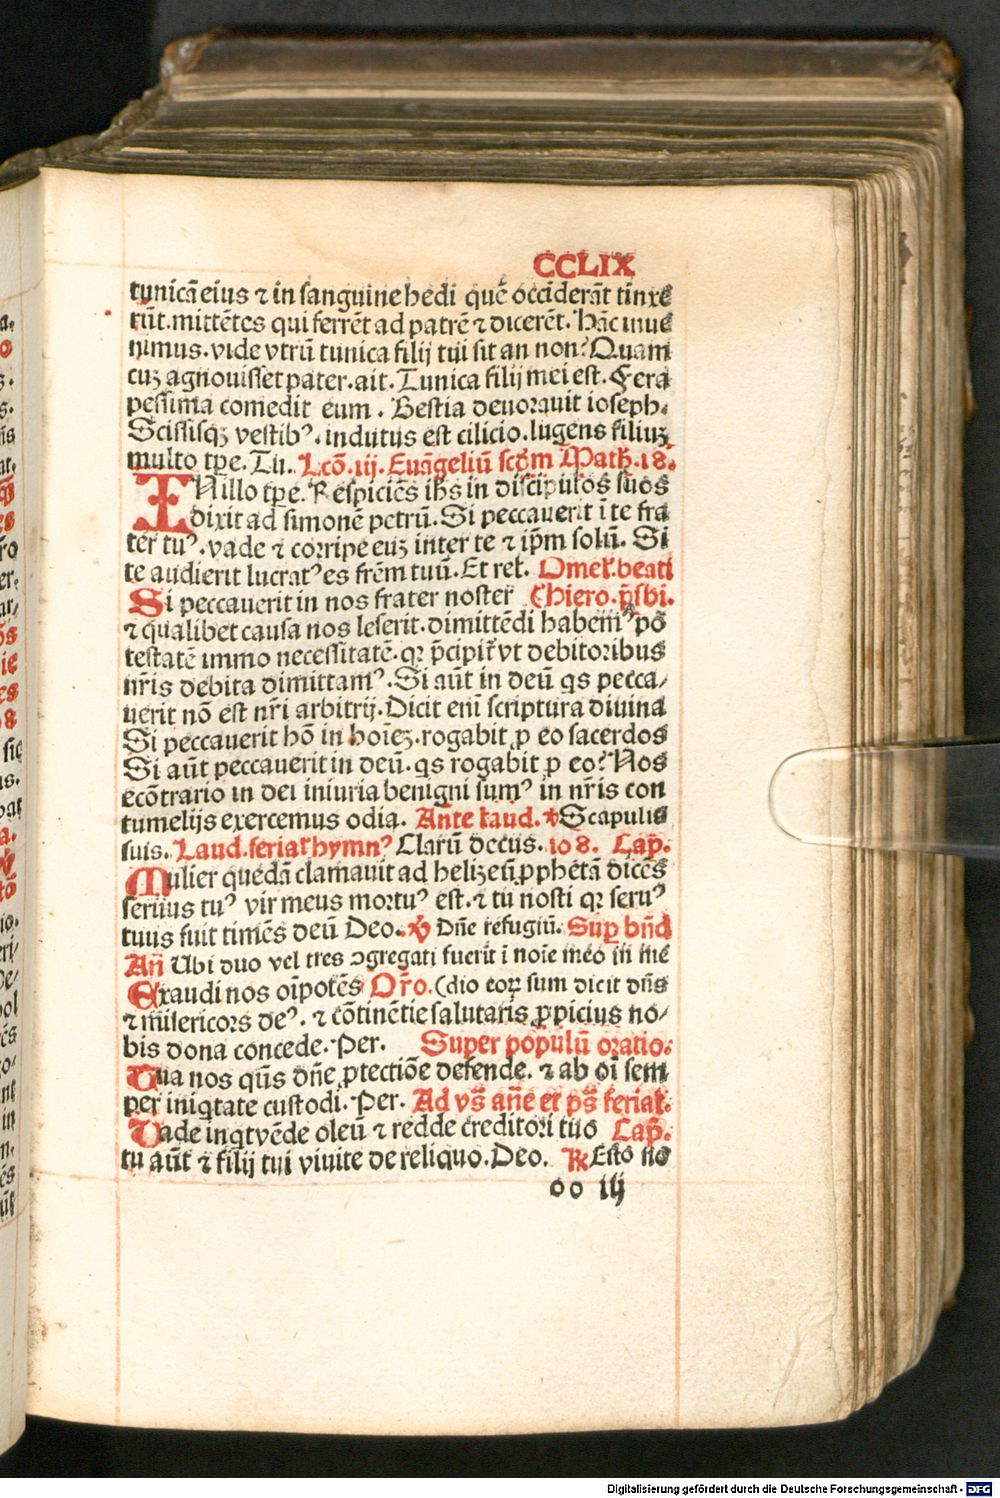 CCLIX
tunicā eius ⁊ in sanguine hedi quē occiderāt tinxe
rūt. mittētes qui ferrēt ad patrē ⁊ dicerēt. Hāc inue
nimus. vide vtrū tunica filij tui sit an non? Quam
cuꝫ agnouisset pater. ait. Tunica filij mei est. Fera
pessima comedit eum. Bestia deuorauit ioseph.
Scissisqꝫ vestibꝰ. indutus est cilicio. lugens filiuꝫ
multo tpe. Tu. Lcō. iij. Euāgeliū scḋm Math. 18.
IN illo tpe. Respiciēs ihs in discipulos suos
dixit ad simonē petrū. Si peccauerit i te fra
ter tuꝰ. vade ⁊ corripe euꝫ inter te ⁊ ip̄m solū. Si
te audierit lucratꝰ es frēm tuū. Et rel. Omel. beati
Si peccauerit in nos frater noster (Hiero. p̄sbi.
⁊ qualibet causa nos leserit. dimittēdi habemꝰ po
testatē immo necessitatē. qr p̄cipit vt debitoribus
nr̄is debita dimittamꝰ. Si aūt in deū qs pecca/
uerit nō est nr̄i arbitrij. Dicit em̄ scriptura diuina
Si peccauerit hō in hoīeꝫ. rogabit ꝓ eo sacerdos
Si aūt peccauerit in deū. qs rogabit ꝓ eo? Nos
ecōtrario in dei iniuria benigni sumꝰ in nr̄is con
tumelijs exercemus odia. Ante laud. ℣ Scapulis
suis. Laud. ferial hymnꝰ Clarū decus. 108. Cap.
Mulier quedā clamauit ad helizeū ꝓphetā dicēs
seruus tuꝰ vir meus mortuꝰ est. ⁊ tu nosti qr seruꝰ
tuus fuit timēs deū Deo. ℣ Dn̄e refugiū. Sup bn̄d
Añ Ubi duo vel tres ↄgregati fuerit i noīe meo in me
Exaudi nos oīpotēs Or̄o. (dio eoꝝ sum dicit dn̄s
⁊ misericors deꝰ. ⁊ cōtinētie salutaris ꝓpicius no/
bis dona concede. Per. Super populū oratio.
Tua nos qūs dn̄e ꝓtectiōe defende. ⁊ ab oī sem
per iniqtate custodi. Per. Ad vs̄ añe et ps̄ ferial.
Vade inqt vēde oleū ⁊ redde creditori tuo Cap.
tu aūt ⁊ filij tui viuite de reliquo. Deo. ℟ Esto no
oo iij
Digitalisierung gefördert durch die Deutsche Forschungsgemeinschaft - DFG